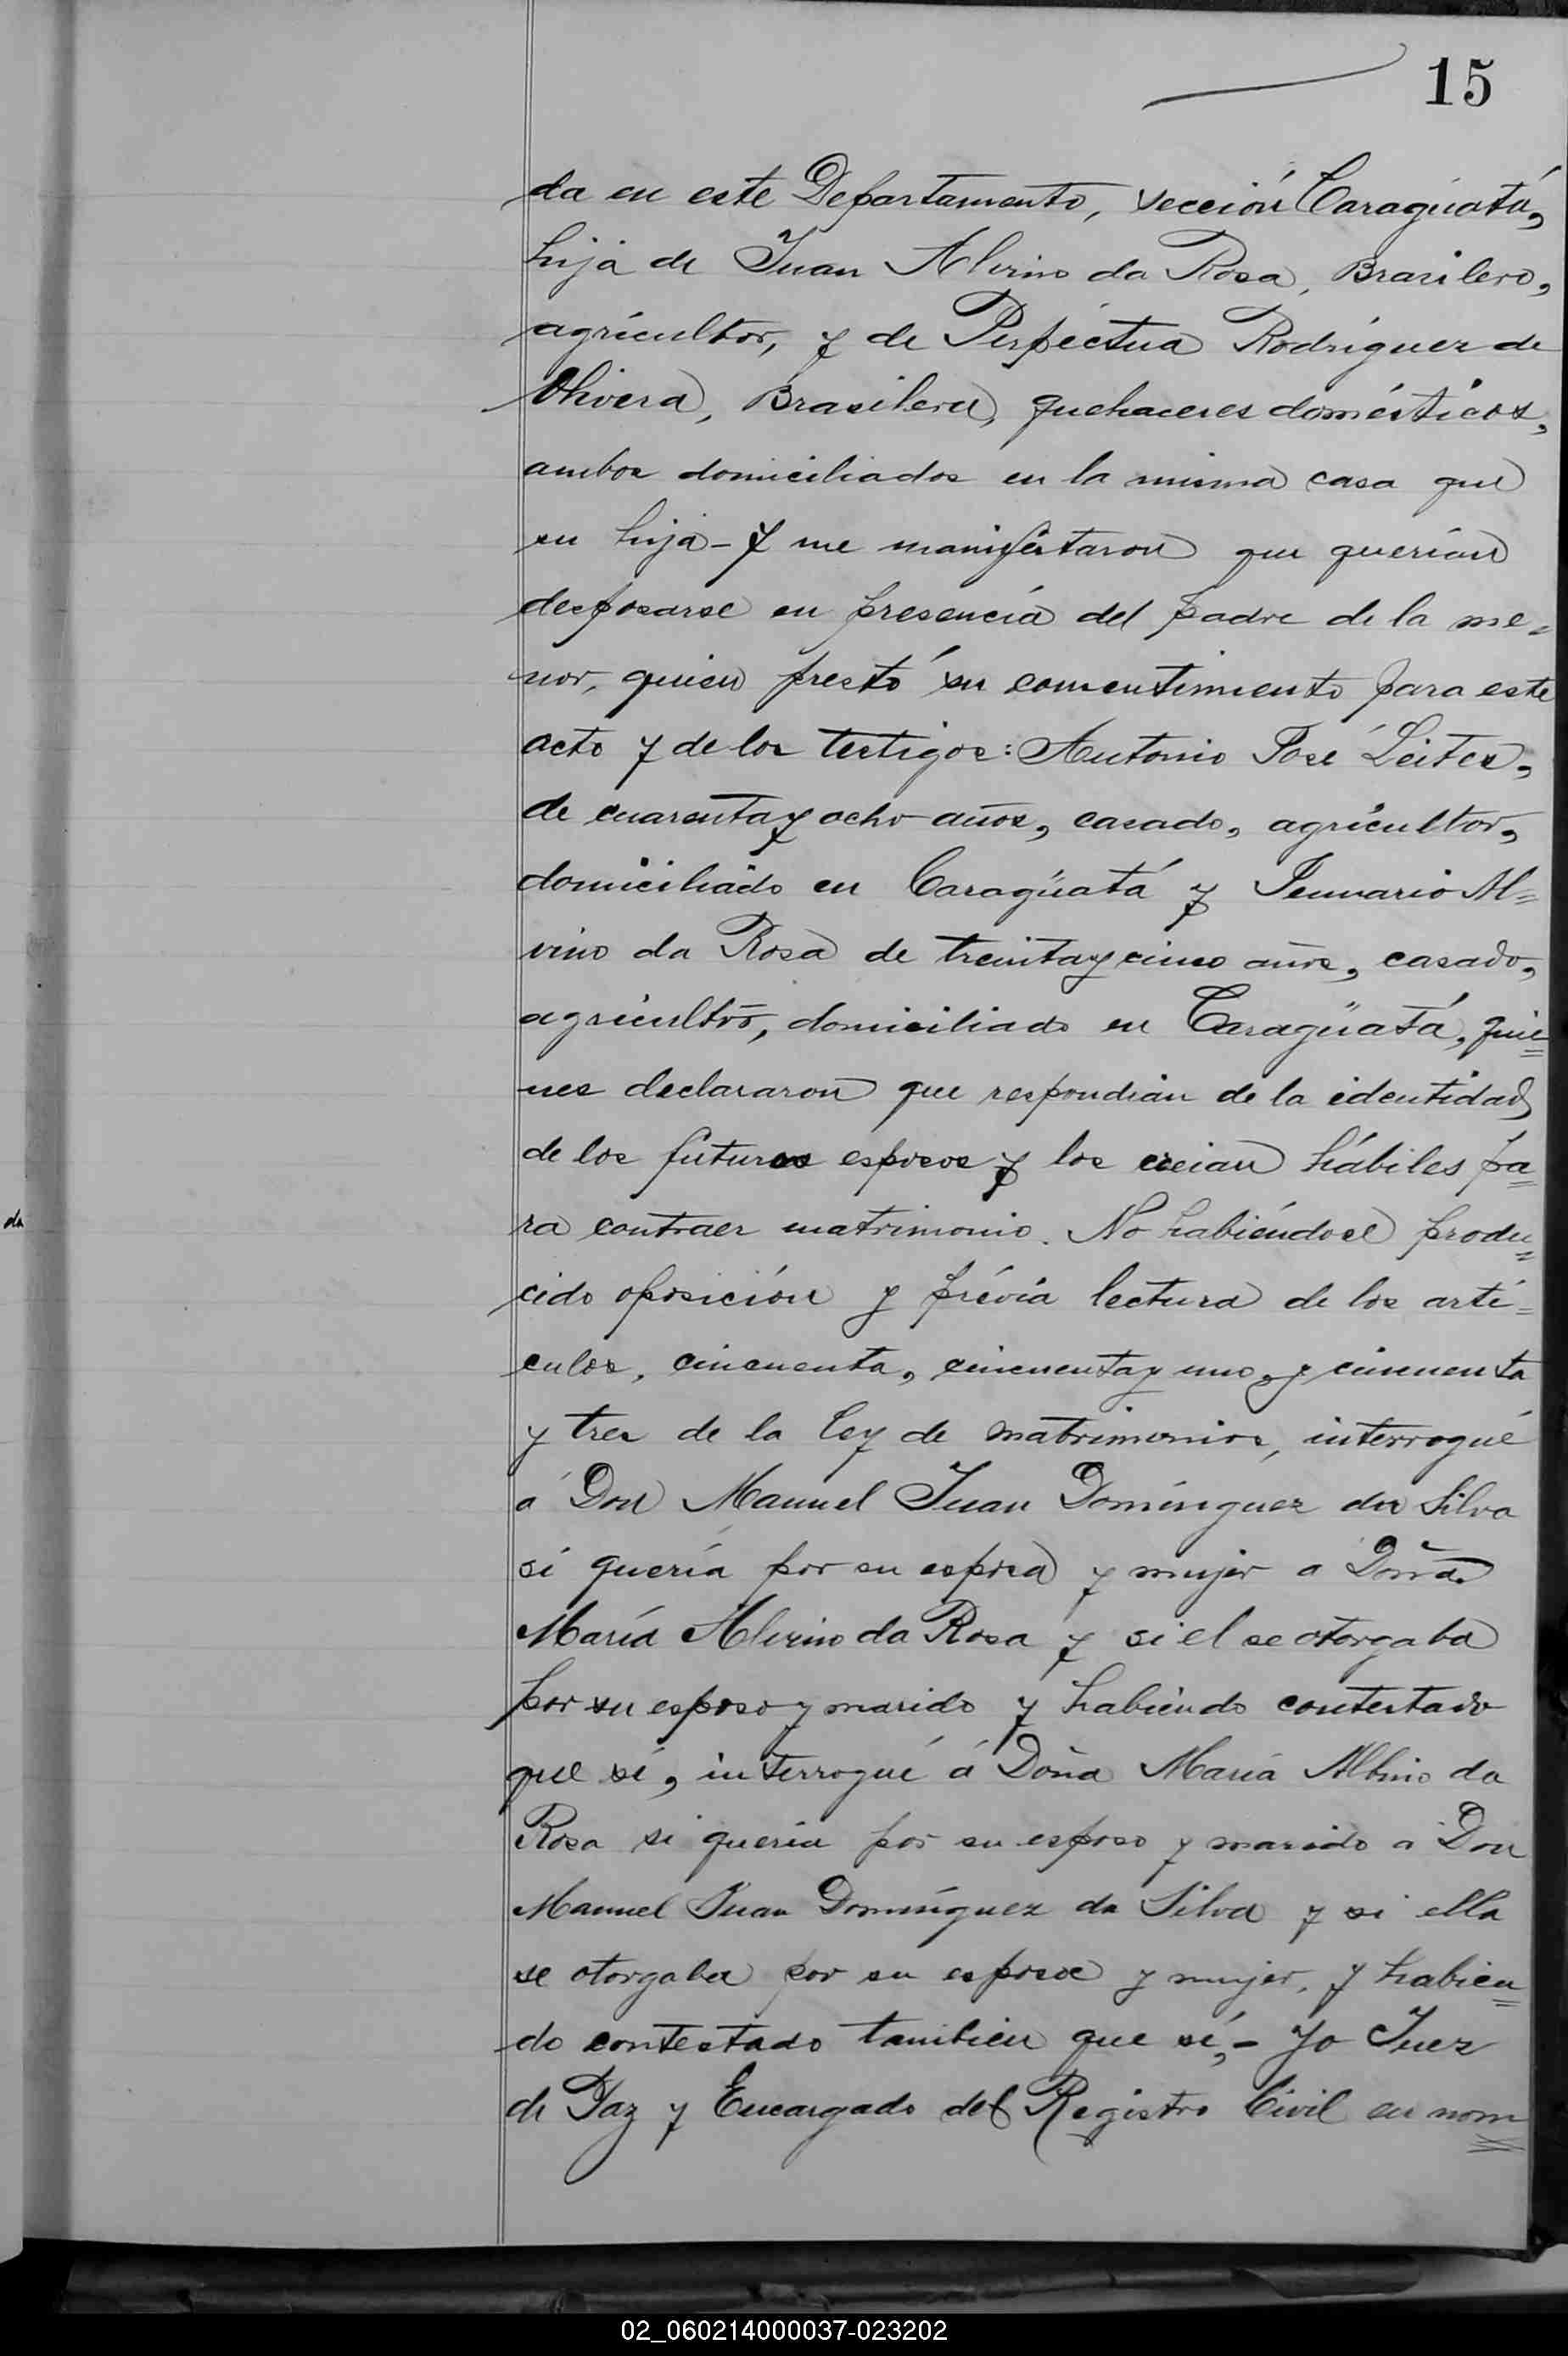 15
da en este Departamento, sección Caraguatá,
hija de Juan Alvino da Rosa, Brasilero,
agricultor, y de Perpéctua Rodríguez de
Olivera, Brasilera, quehaceres domésticos,
ambos domiciliados en la misma casa que
su hija - Y me manifestaron que querían
desposarse en presencia del padre de la me=
nor, quien prestó su consentimiento para este
acto y de los testigos: Antonio José Leites,
de cuarenta y ocho años, casado, agricultor,
domiciliado en Caragüatá y Jenuario Al=
vino da Rosa de treinta y cinco años, casado,
agricultor, domiciliado en Caragüatá, quie=
nes declararon que respondian de la identidad
de los futuros esposos y los creian hábiles pa=
da
ra contraer matrimonio. No habiéndose produ=
cido oposición y prévia lectura de los artí=
culos, cincuenta, cincuenta y uno, y cincuenta
y tres de la Ley de matrimonios, interrogué
á Don Manuel Juan Domínguez da Silva
si quería por su esposa y mujer a Doña
María Alvino da Rosa y si el se otorgaba
por su esposo y marido y habiendo contestado
que sí, interrogué á Doña María Albino da
Rosa si quería por su esposo y marido a Don
Manuel Juan Domínguez da Silva y si ella
se otorgaba por su esposa y mujer, y habien=
do contestado tambien que sí, - Yo Juez
de Paz y Encargado del Registro Civil en nom=
02_060214000037-023202